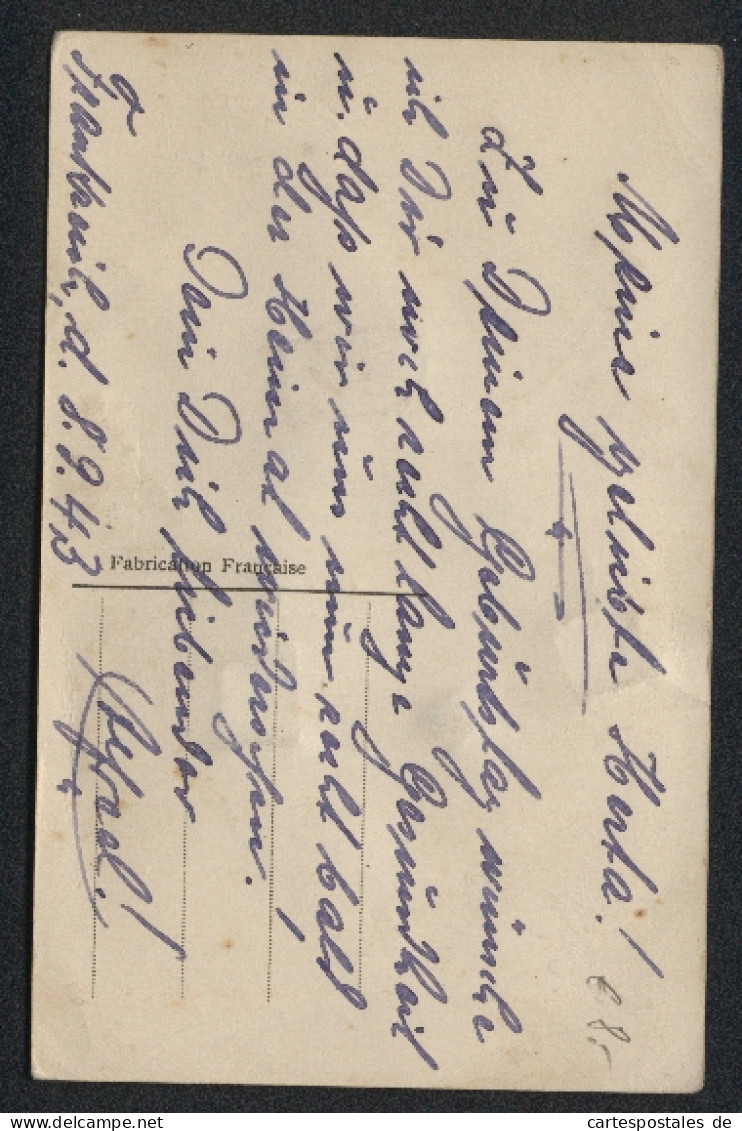 Meine geliebte Herta!
Zu Deinem Geburtstag wünsche
ich Dir noch recht lange Gesundheit
u. dass wir uns nun recht bald
in der Heimat wiedersehen.
Dein Dich liebender
Frankreich, d. 8.9.43
Fabrication Française
€ 8,-
cartespostales de